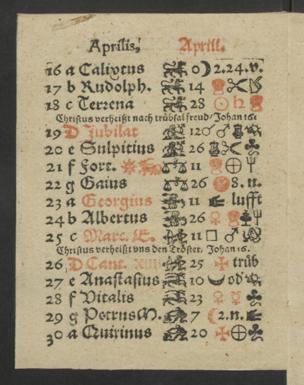 Aprilis. Aprill.
16 a Calixtus 0 2.24.v.
17 b Rudolph. 14
18 c Terrena 28
Christus verheißt nach trübsal freud/Johan 16.
19 D Jubilat 12
20 e Sulpitius 26
21 f Fort. 11
22 g Gaius 26 8. n.
23 a Georgius 11 lufft
24 b Albertus 26
25 c Marc. E. 11
Christus verheißt vns den Tröster. Johan 16.
26 D Cant. 25 trüb
27 e Anastasius 10 od
28 f Vitalis 23
29 g Petrus M. 7 2.n.
30 a Quirinus 20